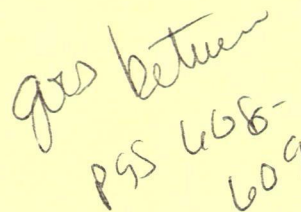 goes between
pgs 608-
609